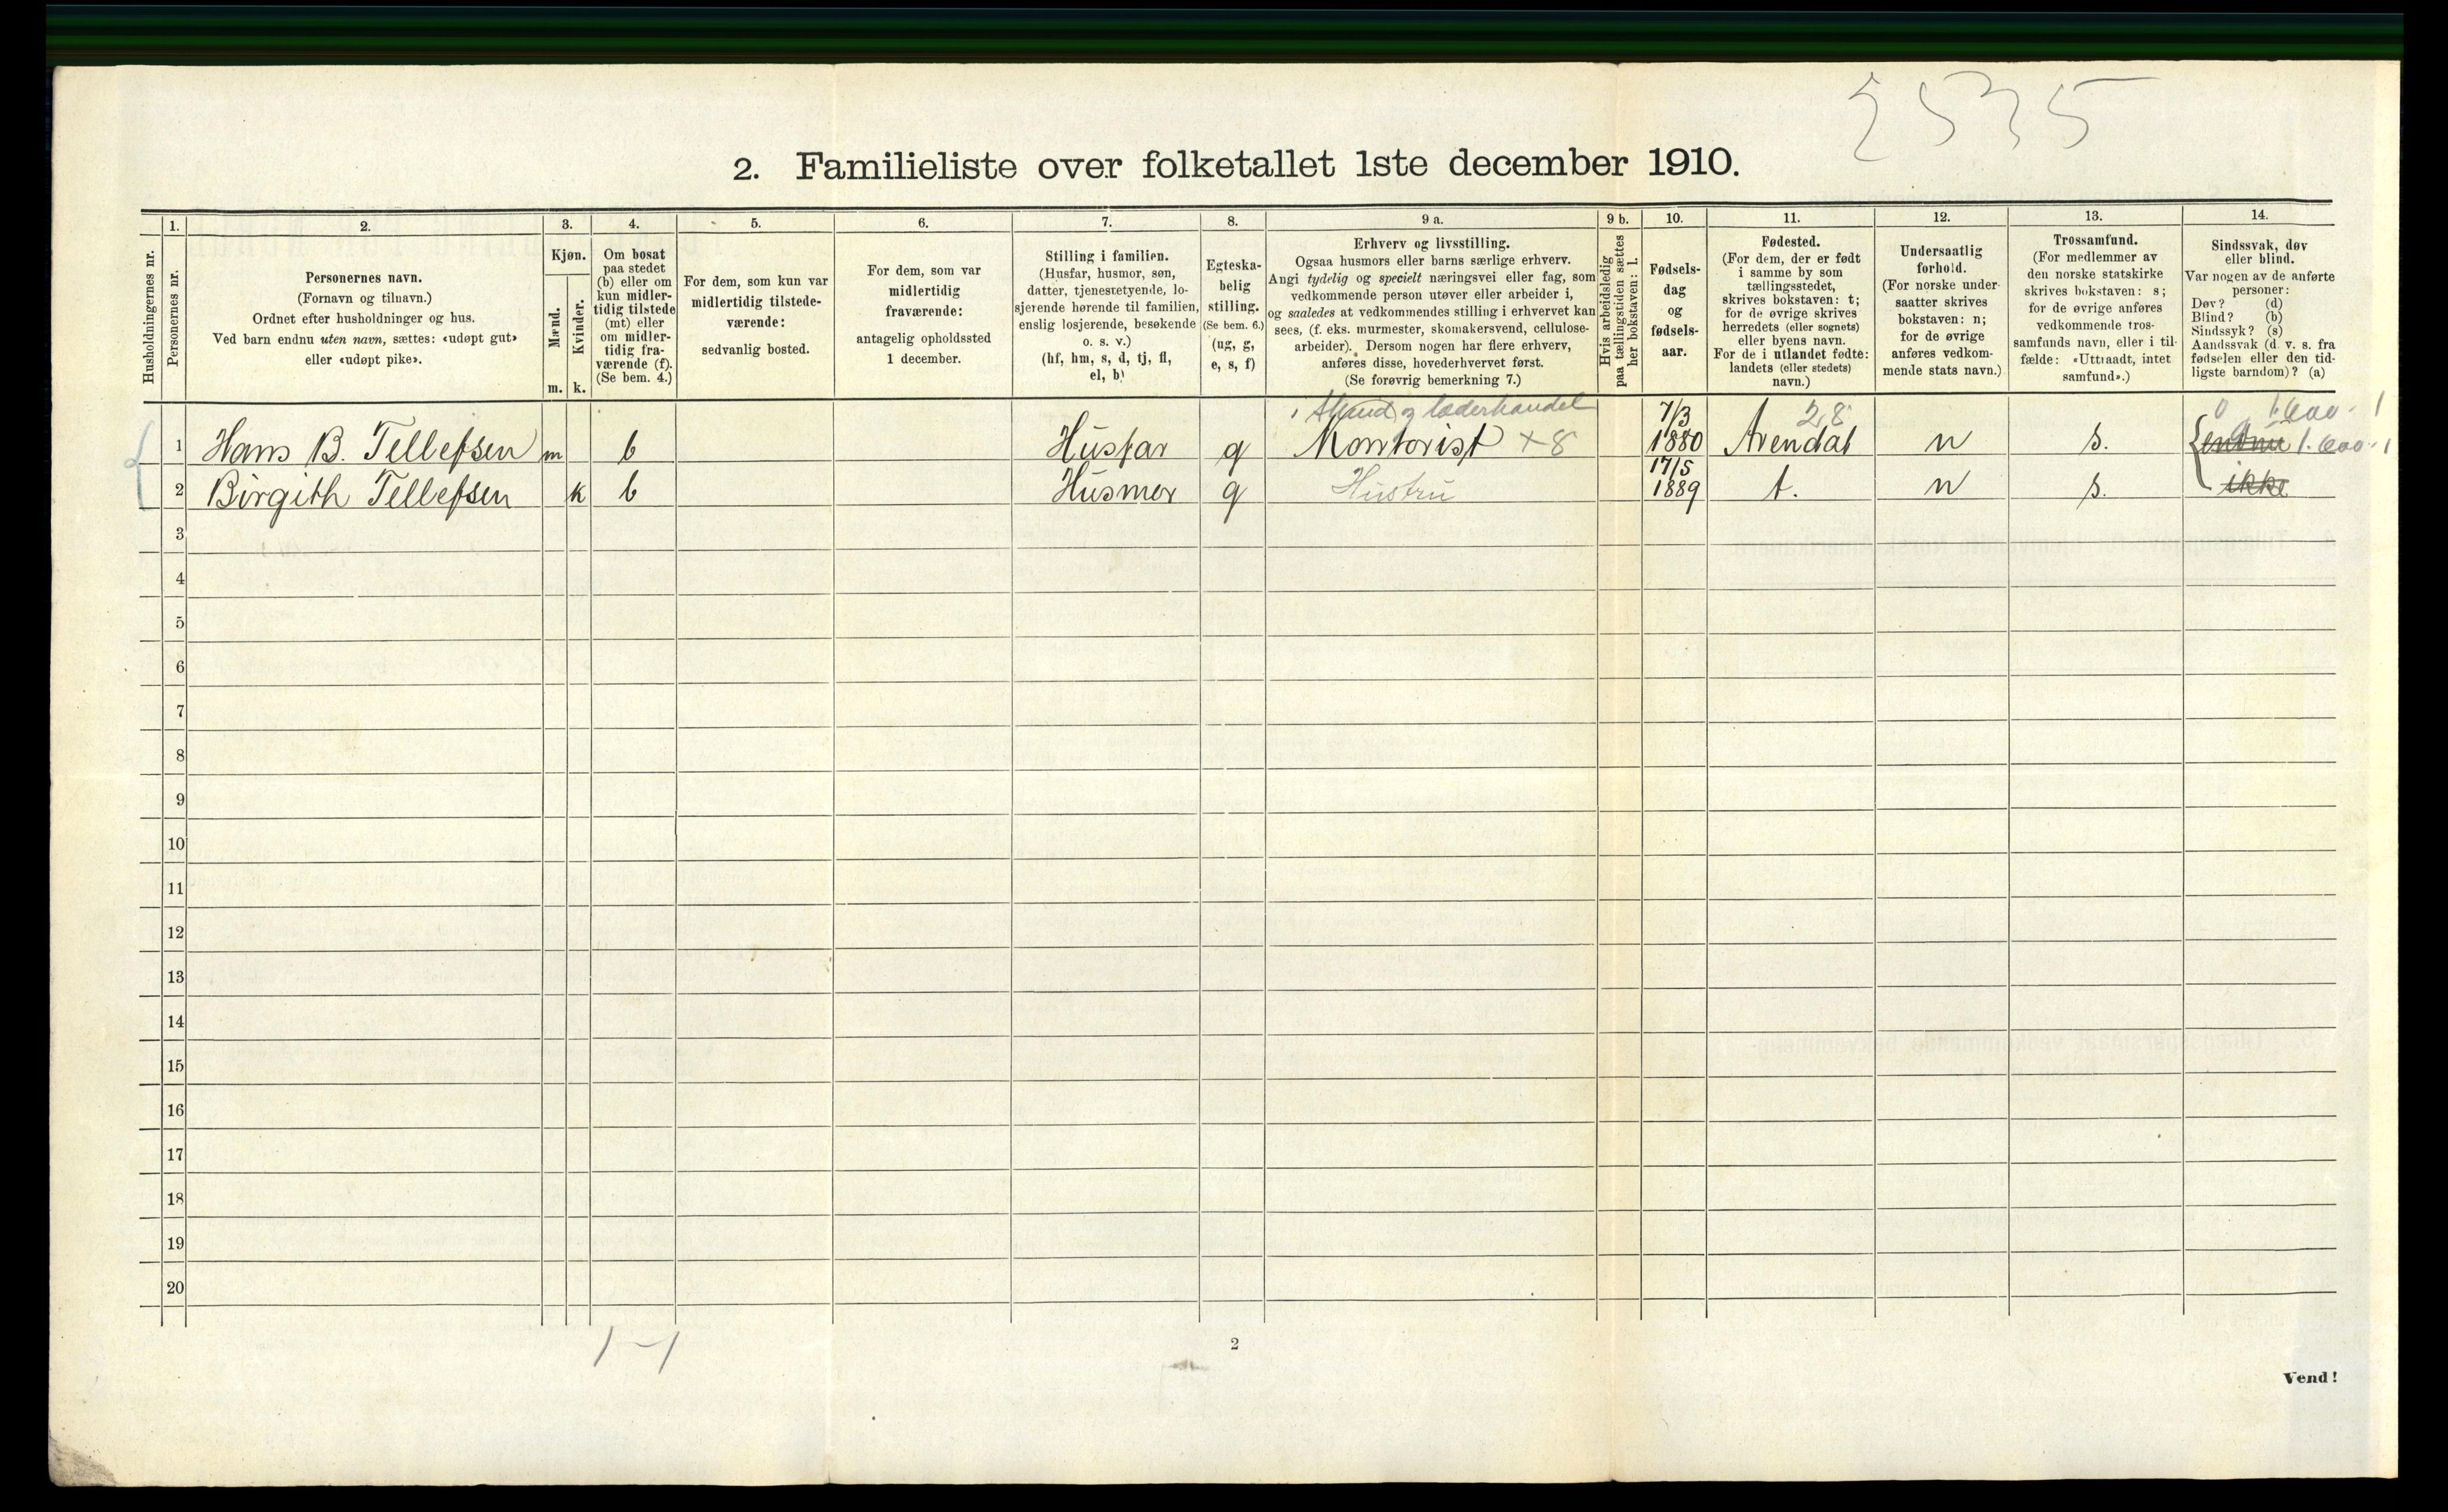 2535
2. Familieliste over folketallet 1ste december 1910.
Husholdningernes nr.
1.
Personernes nr.
2.
Personernes navn.
(Fornavn og tilnavn.)
Ordnet efter husholdninger og hus.
Ved barn endnu uten navn, sættes: «udøpt gut»
eller «udøpt pike».
3.
Kjøn.
Mænd.
Kvinder.
m. k.
4.
Om bosat
paa stedet
(b) eller om
kun midler-
tidig tilstede
(mt) eller
om midler-
tidig fra-
værende (f).
(Se bem. 4.)
5.
For dem, som kun var
midlertidig tilstede-
værende:
sedvanlig bosted.
6.
For dem, som var
midlertidig
fraværende:
antagelig opholdssted
1 december.
7.
Stilling i familien.
(Husfar, husmor, søn,
datter, tjenestetyende, lo-
sjerende hørende til familien,
enslig losjerende, besøkende
o. s. v.)
(hf, hm, s, d, tj, fl,
el, b)
8.
Egteska-
belig
stilling.
(Se bem. 6.)
(ug, g,
e, s, f)
9 a.
Erhverv og livsstilling.
Ogsaa husmors eller barns særlige erhverv.
Angi tydelig og specielt næringsvei eller fag, som
vedkommende person utøver eller arbeider i,
og saaledes at vedkommendes stilling i erhvervet kan
sees, (f. eks. murmester, skomakersvend, cellulose-
arbeider). Dersom nogen har flere erhverv,
anføres disse, hovederhvervet først.
(Se forøvrig bemerkning 7.)
9 b.
Hvis arbeidsledig
paa tællingstiden sættes
her bokstaven: l.
10.
Fødsels-
dag
og
fødsels-
aar.
11.
Fødested.
(For dem, der er født
i samme by som
tællingsstedet,
skrives bokstaven: t;
for de øvrige skrives
herredets (eller sognets)
eller byens navn.
For de i utlandet fødte:
landets (eller stedets)
navn.)
12.
Undersaatlig
forhold.
(For norske under-
saatter skrives
bokstaven: n;
for de øvrige
anføres vedkom-
mende stats navn.)
13.
Trossamfund.
(For medlemmer av
den norske statskirke
skrives bokstaven: s;
for de øvrige anføres
vedkommende tros-
samfunds navn, eller i til-
fælde: «Uttraadt, intet
samfund».)
14.
Sindssvak, døv
eller blind.
Var nogen av de anførte
personer:
Døv? (d)
Blind? (b)
Sindssyk? (s)
Aandssvak (d. v. s. fra
fødselen eller den tid-
ligste barndom)? (a)
og læderhandel 7/3 28
1 Hans B. Tellefsen m b Husfar g Kontorist +8 1880 Arendal n s. endnu
17/5
2 Birgith Tellefsen k b Husmor g Hustru 1889 t. n s. ikke
3
4
5
6
7
8
9
10
11
12
13
14
15
16
17
18
19
20
1-1
2
Vend!